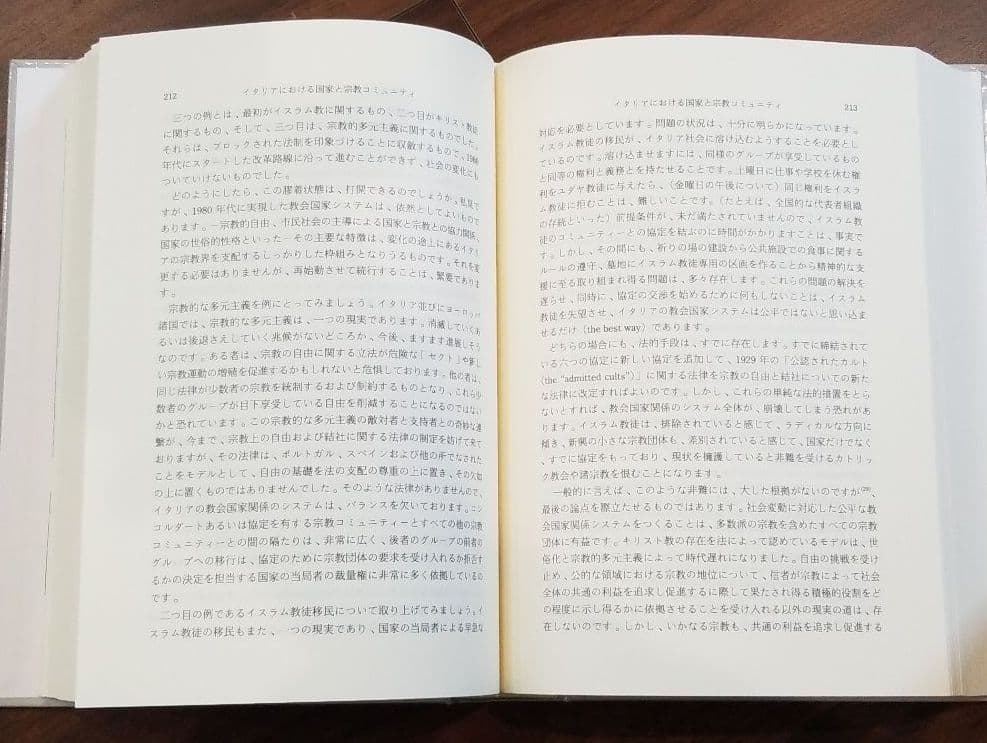 212
イタリアにおける国家と宗教コミュニティ
三つの例とは、最初がイスラム教に関するもの、二つ目がキリスト教徒
に関するもの、そして、三つ目は、宗教的多元主義に関するものでした。
それらは、ブロックされた法制を印象づけることに収斂するもので、1980
年代にスタートした改革路線に沿って進むことができず、社会の変化にも
ついていけないものでした。
どのようにしたら、この膠着状態は、打開できるのでしょうか。私見で
すが、1980年代に実現した教会国家システムは、依然としてよいもので
あります。―宗教的自由、市民社会の主導による国家と宗教との協力関係、
国家の世俗的性格といった―その主要な特徴は、変化の途上にあるイタリ
アの宗教界を支配するしっかりした枠組みとなりうるものです。それを変
更する必要はありませんが、再始動させて続行することは、緊要でありま
す。
宗教的な多元主義を例にとってみましょう。イタリア並びにヨーロッパ
諸国では、宗教的な多元主義は、一つの現実であります。消滅していくあ
るいは後退さえしていく兆候がないどころか、今後、ますます進展しそう
なのです。ある者は、宗教の自由に関する立法が危険な「セクト」や新し
い宗教運動の増殖を促進するかもしれないと危惧しております。他の者は、
同じ法律が少数者の宗教を統制するおよび制約するものとなり、これら少
数者のグループが目下享受している自由を削減することになるのではない
かと恐れています。この宗教的な多元主義の敵対者と支持者との奇妙な連
繋が、今まで、宗教上の自由および結社に関する法律の制定を妨げて来て
おりますが、その法律は、ポルトガル、スペインおよび他の所でなされた
ことをモデルとして、自由の基礎を法の支配の尊重の上に置き、その欠如
の上に置くものではありませんでした。そのような法律がありませんので、
イタリアの教会国家関係のシステムは、バランスを欠いております。コン
コルダートあるいは協定を有する宗教コミュニティーとすべての他の宗教
コミュニティーとの間の隔たりは、非常に広く、後者のグループの前者の
グループへの移行は、協定のために宗教団体の要求を受け入れるか拒否す
るかの決定を担当する国家の当局者の裁量権に非常に多く依拠しているの
です。
二つ目の例であるイスラム教徒移民について取り上げてみましょう。イ
スラム教徒の移民もまた、一つの現実であり、国家の当局者による早急な
イタリアにおける国家と宗教コミュニティ
213
対応を必要としています。問題の状況は、十分に明らかになっています。
イスラム教徒の移民が、イタリア社会に溶け込むようすることを必要とし
ているのです。溶け込ませますには、同様のグループが享受しているもの
と同等の権利と義務とを持たせることです。土曜日に仕事や学校を休む権
利をユダヤ教徒に与えたら、（金曜日の午後について）同じ権利をイスラ
ム教徒に拒むことは、難しいことです。（たとえば、全国的な代表者組織
の存続といった）前提条件が、未だ満たされていませんので、イスラム教
徒のコミュニティーとの協定を結ぶのに時間がかかりますことは、事実で
す。しかし、その間にも、祈りの場の建設から公共施設での食事に関する
ルールの遵守、墓地にイスラム教徒専用の区画を作ることから精神的な支
援に至る取り組まれ得る問題は、多々存在します。これらの問題の解決を
遅らせ、同時に、協定の交渉を始めるために何もしないことは、イスラム
教徒を失望させ、イタリアの教会国家システムは公平ではないと思い込ま
せるだけ (the best way) であります。
どちらの場合にも、法的手段は、すでに存在します。すでに締結されて
いる六つの協定に新しい協定を追加して、1929年の「公認されたカルト
(the “admitted cults”)」に関する法律を宗教の自由と結社についての新た
な法律に改定すればよいのです。しかし、これらの単純な法的措置をとら
ないとすれば、教会国家関係のシステム全体が、崩壊してしまう恐れがあ
ります。イスラム教徒は、排除されていると感じて、ラディカルな方向に
傾き、新興の小さな宗教団体も、差別されていると感じて、国家だけでなく、
すでに協定をもっており、現状を擁護していると非難を受けるカトリッ
ク教会や諸宗教を恨むことになります。
一般的に言えば、このような非難には、大した根拠がないのですが(29)、
最後の論点を際立たせるものではあります。社会変動に対応した公平な教
会国家関係システムをつくることは、多数派の宗教を含めたすべての宗教
団体に有益です。キリスト教の存在を法によって認めているモデルは、世
俗化と宗教的多元主義によって時代遅れになりました。自由の挑戦を受け
止め、公的な領域における宗教の地位について、信者が宗教によって社会
全体の共通の利益を追求し促進するに際して果たされる積極的役割をど
の程度に示し得るかに依拠させることを受け入れる以外の現実の道は、存
在しないのです。しかし、いかなる宗教も、共通の利益を追求し促進する